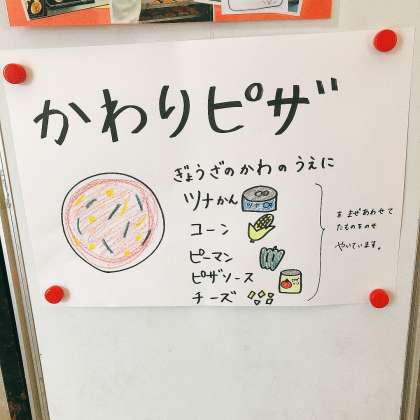 かわりピザ
ぎょうざのかわのうえに
ツナかん
ツナ
コーン
ピーマン
ピザソース
チーズ
をまぜあわせて
たものをのせ
やいています。